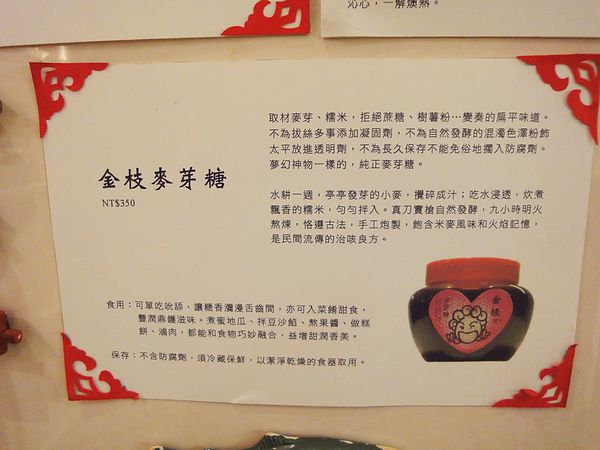 沁心，一解燠熱。
取材麥芽、糯米，拒絕蔗糖、樹薯粉…變奏的扁平味道。
不為拔絲多事添加凝固劑，不為自然發酵的混濁色澤粉飾
太平放進透明劑，不為長久保存不能免俗地擱入防腐劑。
夢幻神物一樣的，純正麥芽糖。
金枝麥芽糖
NT$350
水耕一週，亭亭發芽的小麥，攪碎成汁；吃水浸透，炊煮
飄香的糯米，勻勻拌入。真刀實槍自然發酵，九小時明火
熬煉，恪遵古法，手工炮製，飽含米麥風味和火焰記憶，
是民間流傳的治咳良方。
食用：可單吃吮舔，讓糖香瀰漫舌齒間，亦可入菜餚甜食，
豐潤鼎鑊滋味。煮蜜地瓜、拌豆沙餡、熬果醬、做糕
餅、滷肉，都能和食物巧妙融合，益增甜潤香美。
保存：不含防腐劑，須冷藏保鮮，以潔淨乾燥的食器取用。
金枝